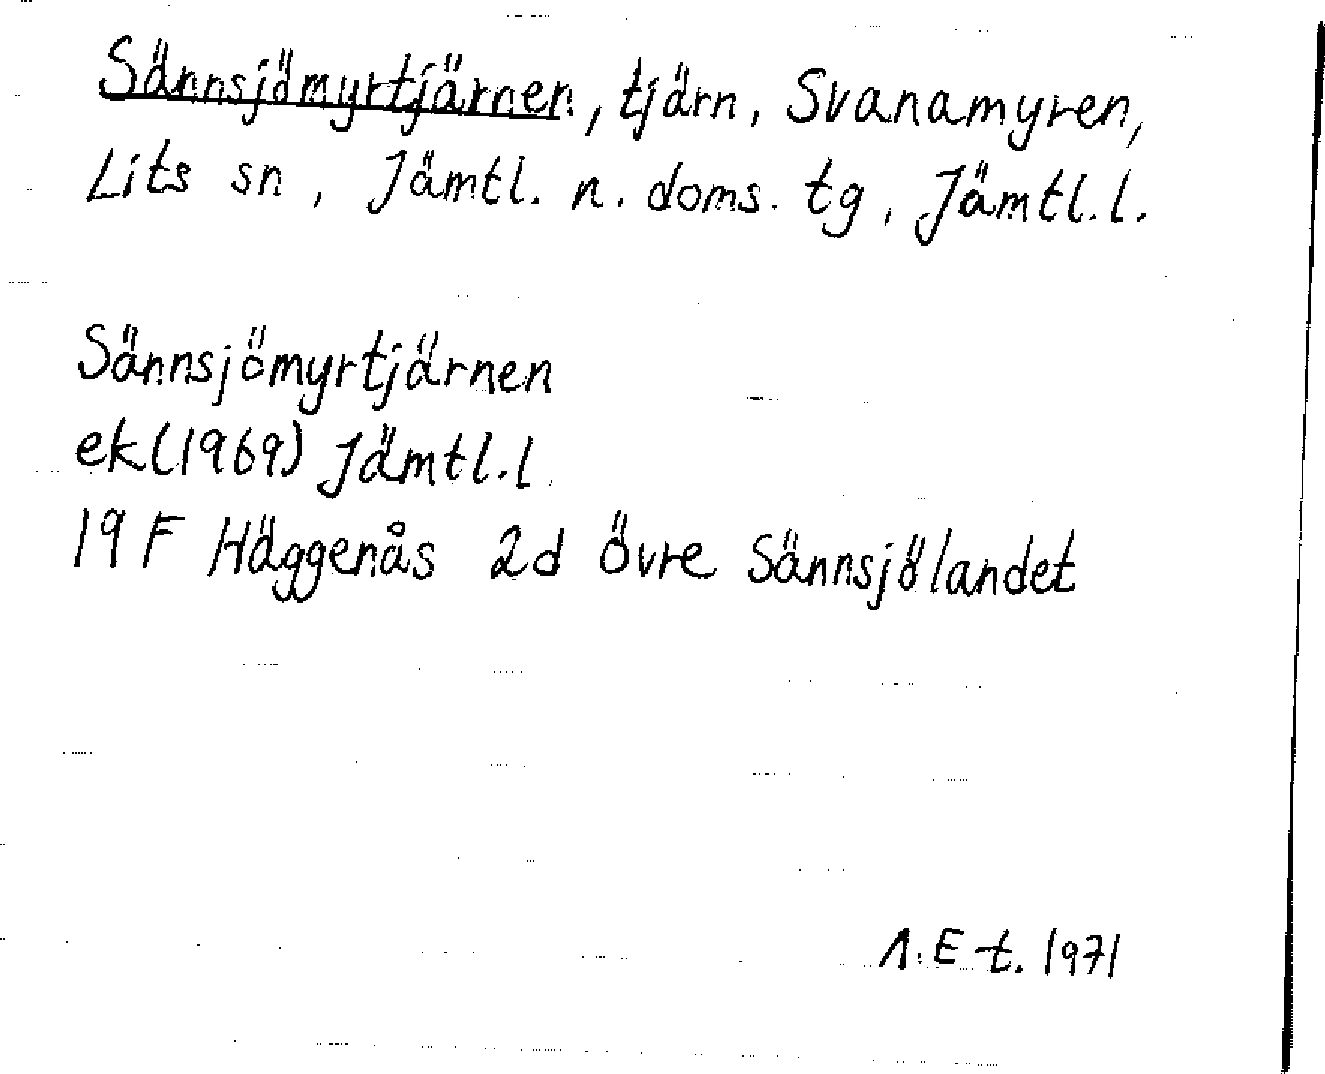 Sännsjömyrtjärnen, tjärn, Svanamyren,
Lits sn, Jämtl. n. doms. tg, Jämtl. l.
Sännsjömyrtjärnen
ek (1969) Jämtl. l.
19 F Häggenås 2d Övre Sännsjölandet
E t. 1971